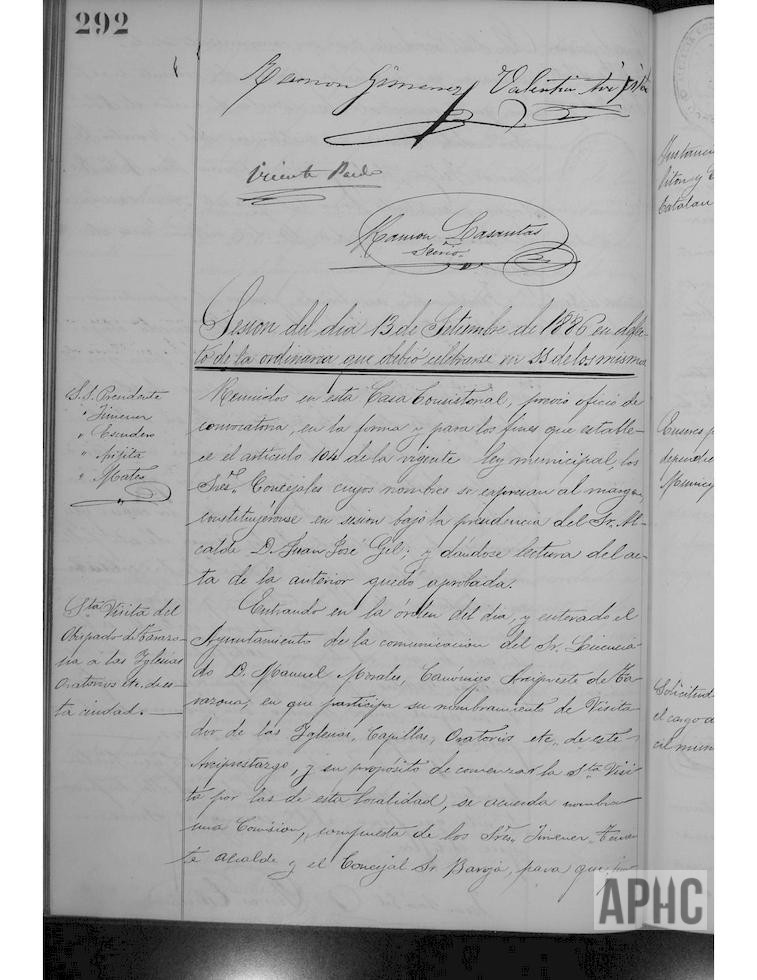 292
Ramon Gimenez Valentin
Vicente Pardo
Ramon Lasantas
Srio.
Sesion del dia 13 de Setiembre de 1886 en defec-
to de la ordinaria que debió celebrarse en 11 de los mismos
S. S. Presidente
" Jimenez
" Escudero
" Azpita
" Mateo
Reunidos en esta Casa Consistorial, previo oficio de
convocatoria, en la forma y para los fines que estable-
ce el artículo 104 de la vigente ley municipal, los
Sres. Concejales cuyos nombres se expresan al margen
constituyéronse en sesion bajo la presidencia del Sr. Al-
calde D. Juan José Gil; y dándose lectura del ac-
ta de la anterior quedó aprobada.
Sta. Visita del
Obispado de Tarazo-
na a las Iglesias
Oratorios etc. de es-
ta ciudad.
Entrando en la órden del dia, y enterado el
Ayuntamiento de la comunicacion del Sr. Licencia-
do D. Manuel Morales, Canónigo Arcipreste de Ta-
razona, en que participa su nombramiento de Visita-
dor de las Iglesias, Capillas, Oratorios etc, de este
Arciprestazgo, y su propósito de comenzar la Sta. Visi-
ta por las de esta localidad, se acuerda nombrar
una Comision, compuesta de los Sres. Jimenez Tenien-
te alcalde y el Concejal Sr. Baroja, para que,
Instanci
Piton y
Catalan
Enseres p
dependie
Municip
Solicitud
el cargo d
cal mun
APHC